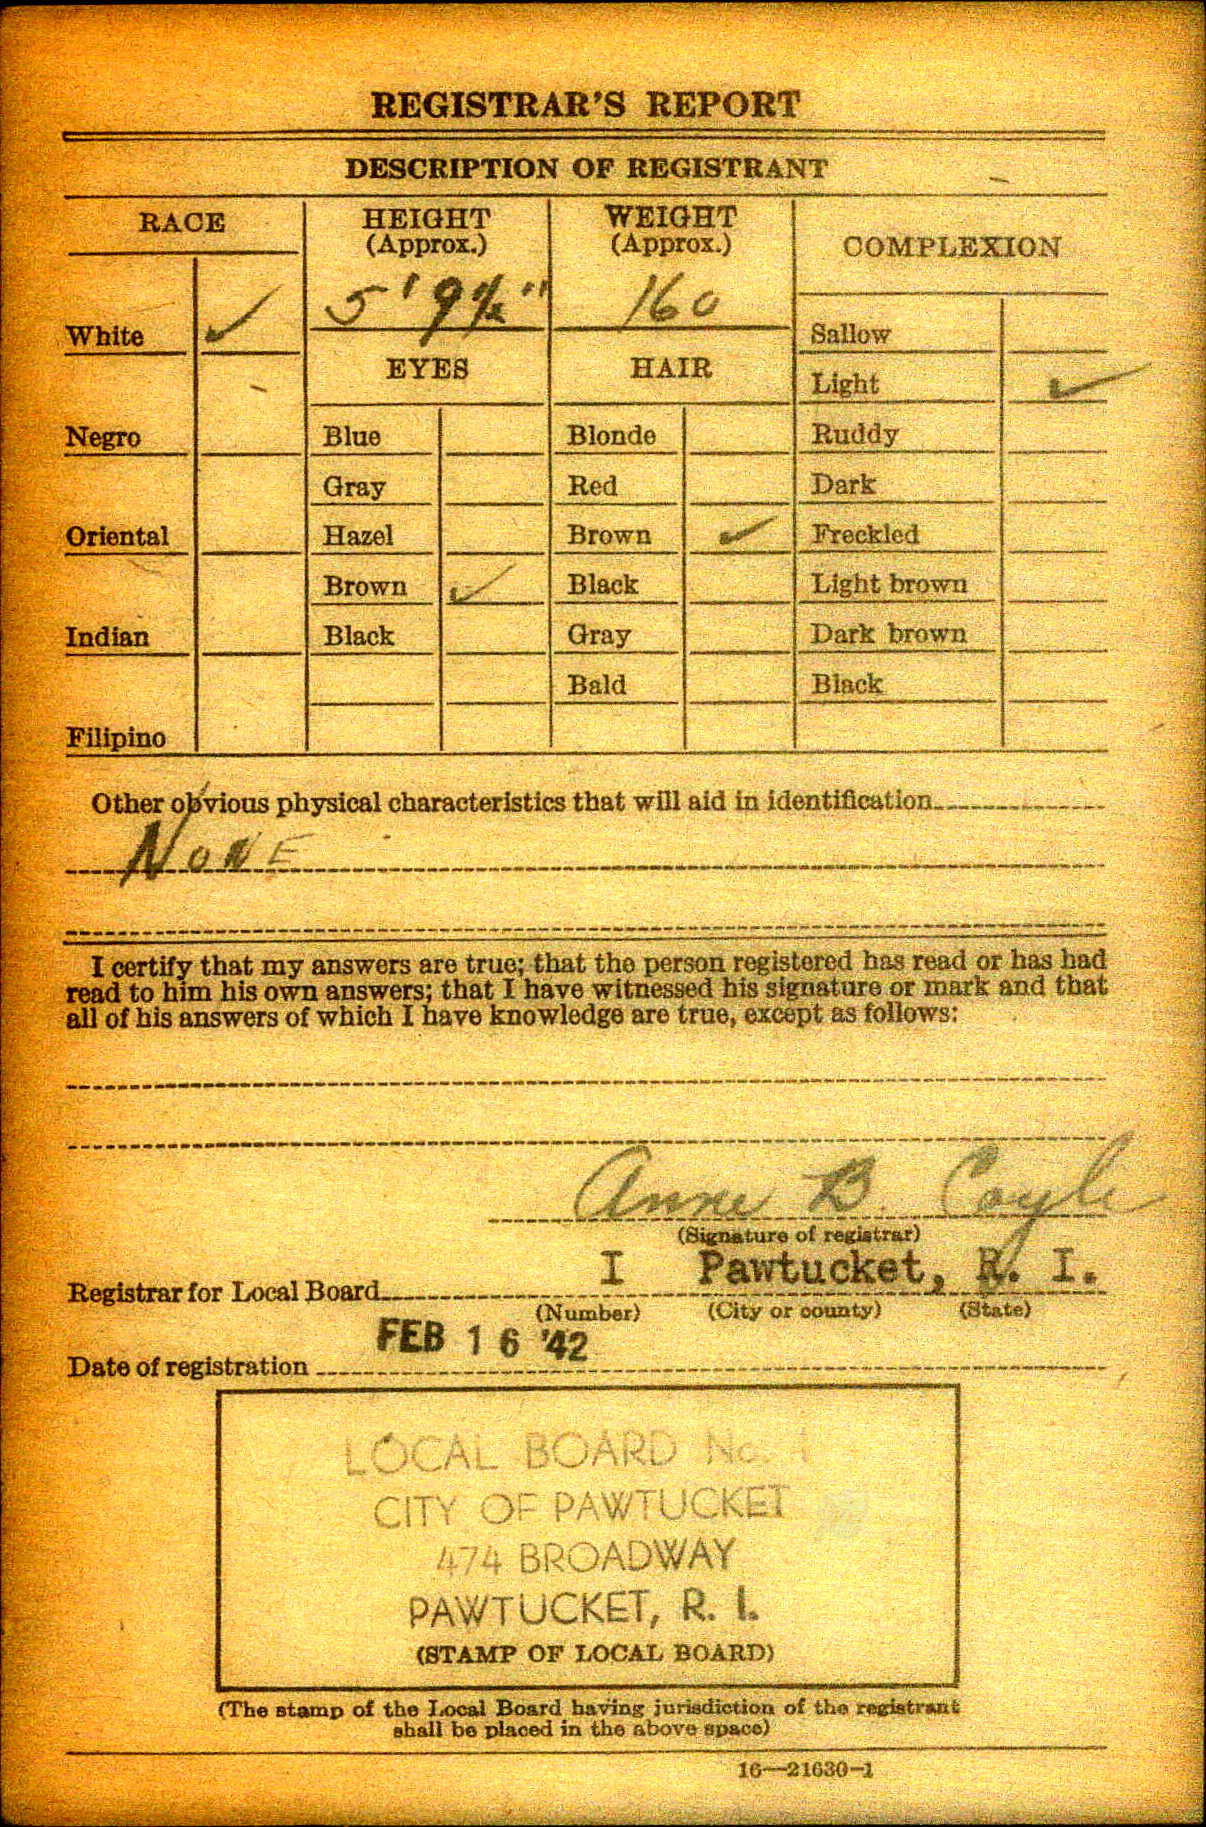 REGISTRAR'S REPORT
DESCRIPTION OF REGISTRANT
RACE
White ✓
Negro
Oriental
Indian
Filipino
HEIGHT
(Approx.)
5' 9½"
EYES
Blue
Gray
Hazel
Brown ✓
Black
WEIGHT
(Approx.)
160
HAIR
Blonde
Red
Brown ✓
Black
Gray
Bald
COMPLEXION
Sallow
Light ✓
Ruddy
Dark
Freckled
Light brown
Dark brown
Black
Other obvious physical characteristics that will aid in identification
NONE
I certify that my answers are true; that the person registered has read or has had
read to him his own answers; that I have witnessed his signature or mark and that
all of his answers of which I have knowledge are true, except as follows:
Anne B. Coyle
(Signature of registrar)
Registrar for Local Board I Pawtucket, R. I.
(Number) (City or county) (State)
Date of registration FEB 16 '42
LOCAL BOARD No. 1
CITY OF PAWTUCKET
474 BROADWAY
PAWTUCKET, R. I.
(STAMP OF LOCAL BOARD)
(The stamp of the Local Board having jurisdiction of the registrant
shall be placed in the above space)
16—21630-1